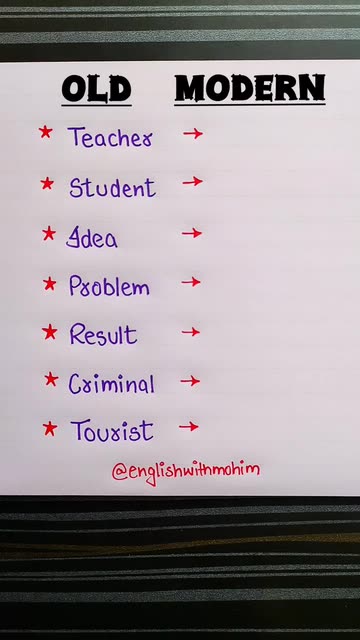 OLD MODERN
★ Teacher →
★ Student →
★ Idea →
★ Problem →
★ Result →
★ Criminal →
★ Tourist →
@englishwithmahim